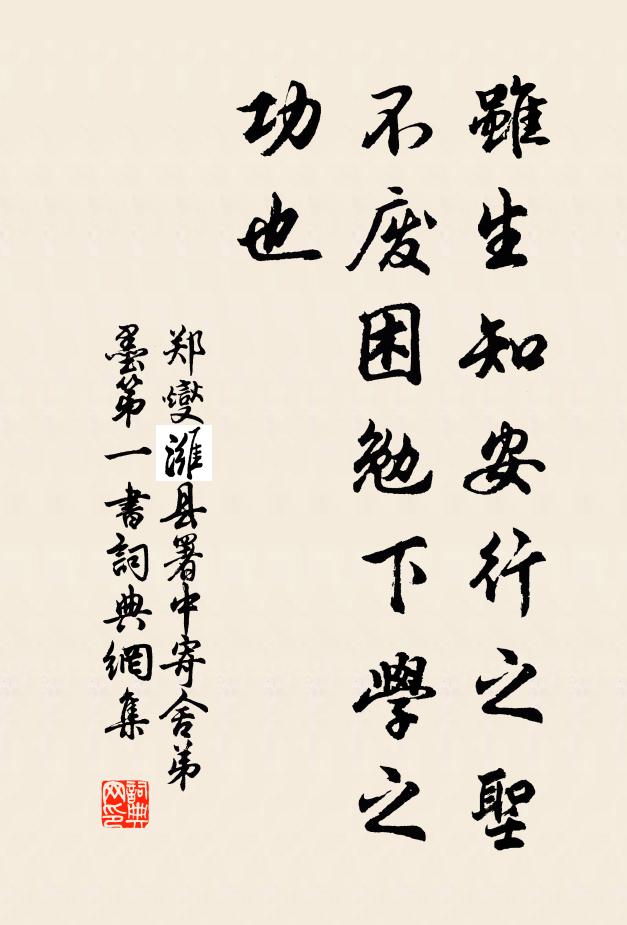 雖生知安行之聖
不废困勉下學之
功也
郑燮潍县署中寄舍弟
墨第一書詞典網集
詞典网印